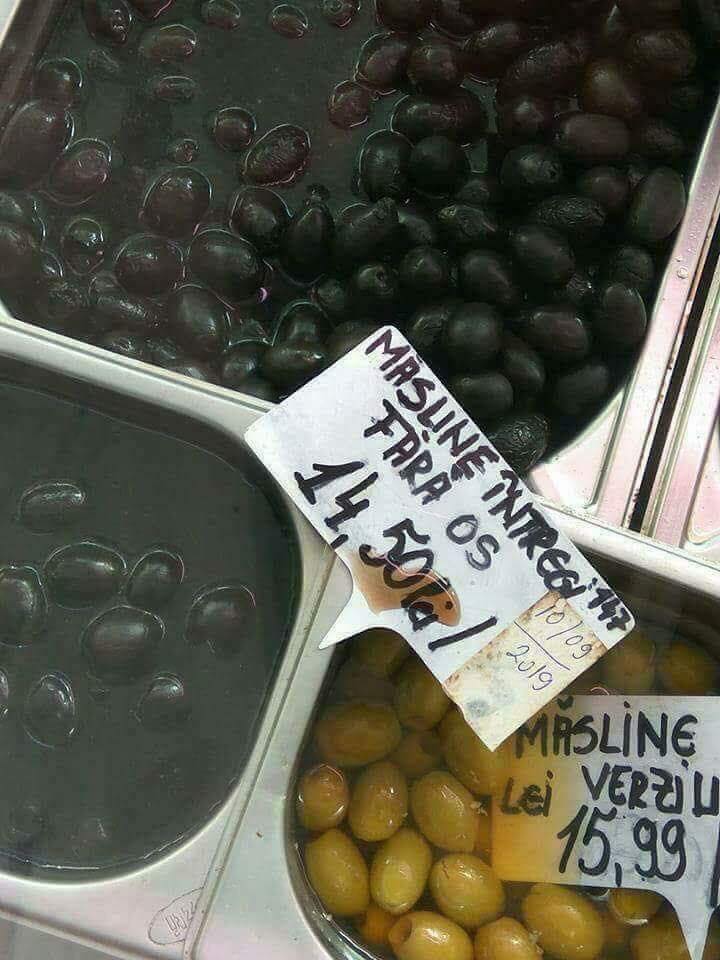 MĂSLINE ÎNTREGI 147
FĂRA OS
14,50 lei
10/09
2019
MĂSLINE
LEI VERZI
15,99